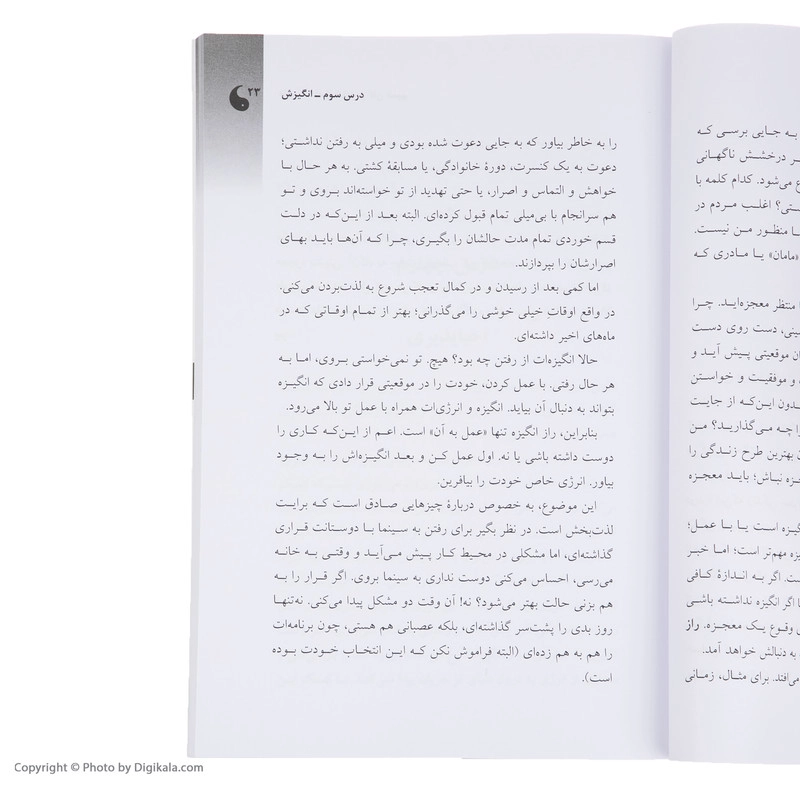 به جایی برسی که
ر درخشش ناگهانی
ع می‌شود. کدام کلمه با
ستی؟ اغلب مردم در
ا منظور من نیست.
«مامان» یا مادری که
منتظر معجزه‌اید. چرا
سینی، دست روی دست
ان موقعیتی پیش آید و
و موفقیت و خواستن
دون این‌که از جایت
را چه می‌گذارید؟ من
ن بهترین طرح زندگی را
جزه نباش؛ باید معجزه
گیزه است یا با عمل؛
یزه مهم‌تر است؛ اما خبر
ت. اگر به اندازهٔ کافی
ا اگر انگیزه نداشته باشی
ی وقوع یک معجزه. راز
به دنبالش خواهد آمد.
می‌افتد. برای مثال، زمانی
درس سوم ــ انگیزش ۲۳
را به خاطر بیاور که به جایی دعوت شده بودی و میلی به رفتن نداشتی؛
دعوت به یک کنسرت، دورهٔ خانوادگی، یا مسابقهٔ کشتی. به هر حال با
خواهش و التماس و اصرار، یا حتی تهدید از تو خواسته‌اند بروی و تو
هم سرانجام با بی‌میلی تمام قبول کرده‌ای. البته بعد از این‌که در دلت
قسم خوردی تمام مدت حالشان را بگیری، چرا که آن‌ها باید بهای
اصرارشان را بپردازند.
اما کمی بعد از رسیدن و در کمال تعجب شروع به لذت‌بردن می‌کنی.
در واقع اوقات خیلی خوشی را می‌گذرانی؛ بهتر از تمام اوقاتی که در
ماه‌های اخیر داشته‌ای.
حالا انگیزه‌ات از رفتن چه بود؟ هیچ. تو نمی‌خواستی بروی، اما به
هر حال رفتی. با عمل کردن، خودت را در موقعیتی قرار دادی که انگیزه
بتواند به دنبال آن بیاید. انگیزه و انرژی‌ات همراه با عمل تو بالا می‌رود.
بنابراین، راز انگیزه تنها «عمل به آن» است. اعم از این‌که کاری را
دوست داشته باشی یا نه. اول عمل کن و بعد انگیزه‌اش را به وجود
بیاور. انرژی خاص خودت را بیافرین.
این موضوع، به خصوص دربارهٔ چیزهایی صادق است که برایت
لذت‌بخش است. در نظر بگیر برای رفتن به سینما با دوستانت قراری
گذاشته‌ای، اما مشکلی در محیط کار پیش می‌آید و وقتی به خانه
می‌رسی، احساس می‌کنی دوست نداری به سینما بروی. اگر قرار را به
هم بزنی حالت بهتر می‌شود؟ نه! آن وقت دو مشکل پیدا می‌کنی. نه‌تنها
روز بدی را پشت‌سر گذاشته‌ای، بلکه عصبانی هم هستی، چون برنامه‌ات
را هم به هم زده‌ای (البته فراموش نکن که این انتخاب خودت بوده
است).
Copyright © Photo by Digikala.com